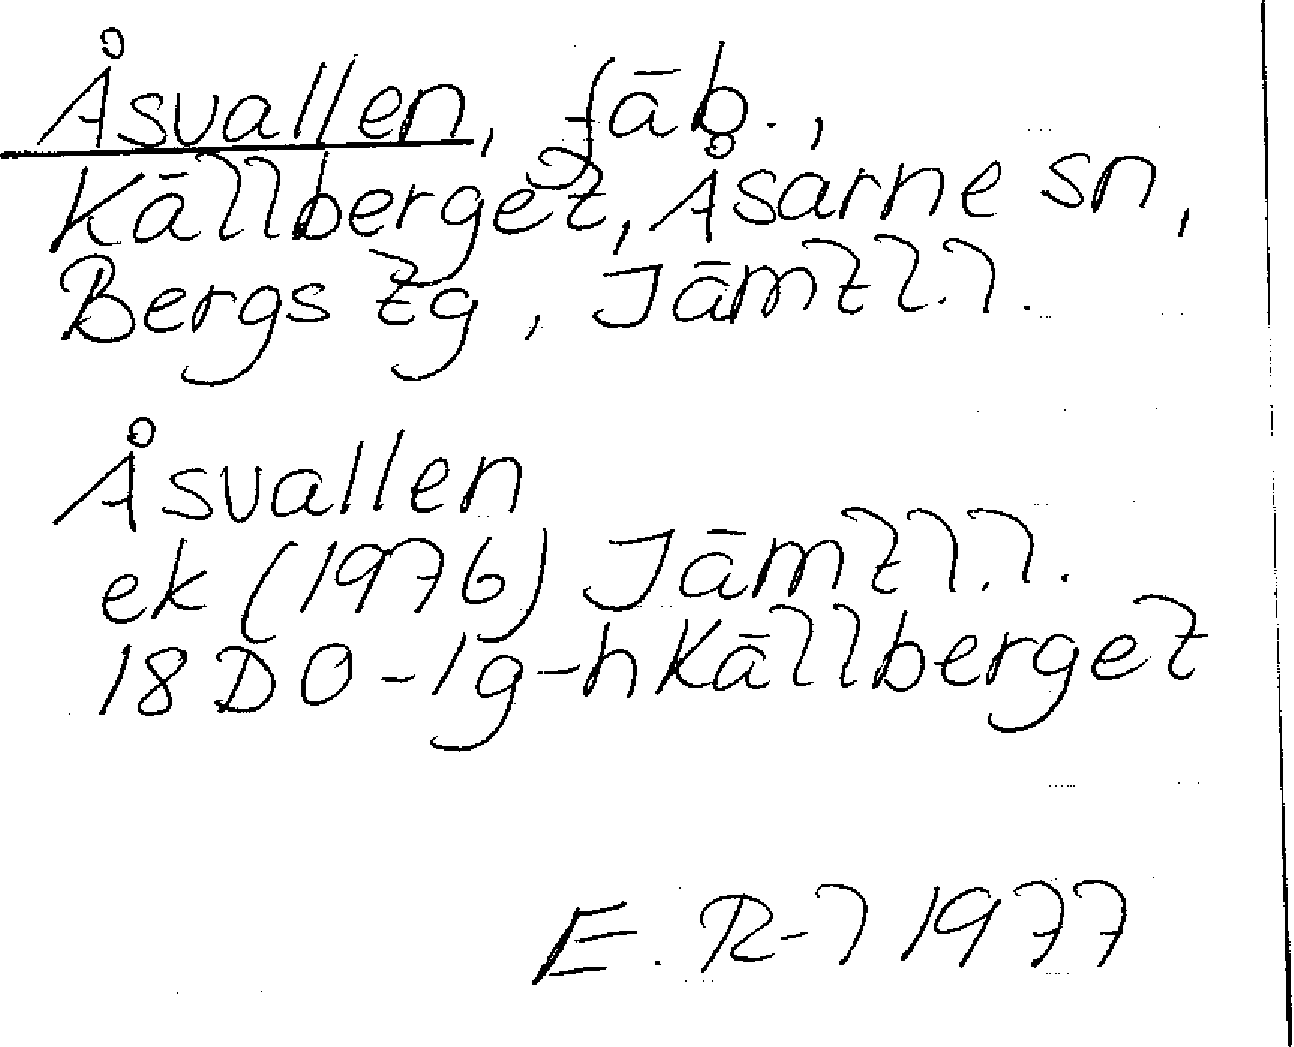 Åsvallen, fäb.,
Källberget, Åsarne sn,
Bergs tg, Jämtl.l.
Åsvallen
ek (1976) Jämtl.l.
18 D 0-1 g-h Källberget
E. R-l 1977